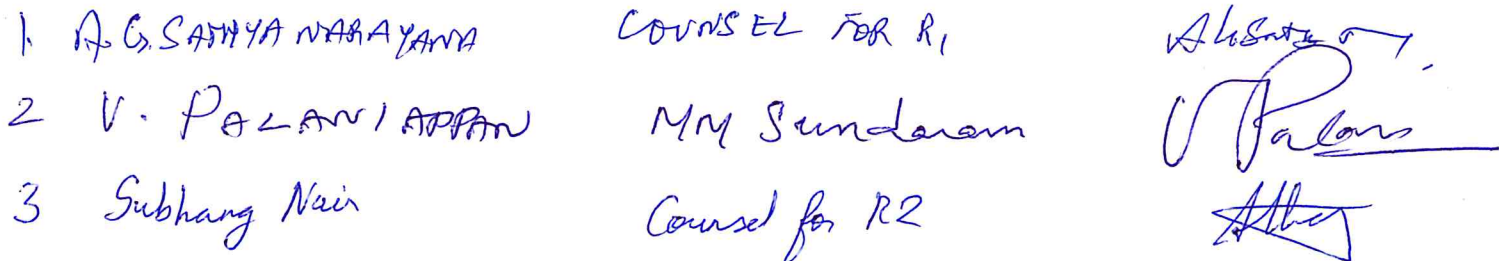 1. A.G. SATHYA NARAYANA COUNSEL FOR R1
2 V. PALANIAPPAN MM Sundaram V Palani
3 Subhang Nair Counsel for R2